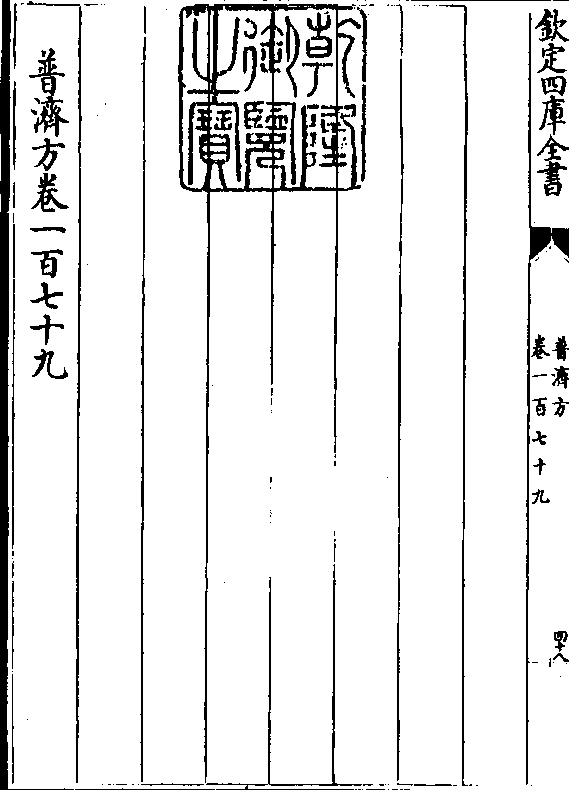 欽定四庫全書
普濟方
卷一百七十九
四十八
乾隆御覽之寶
普濟方卷一百七十九